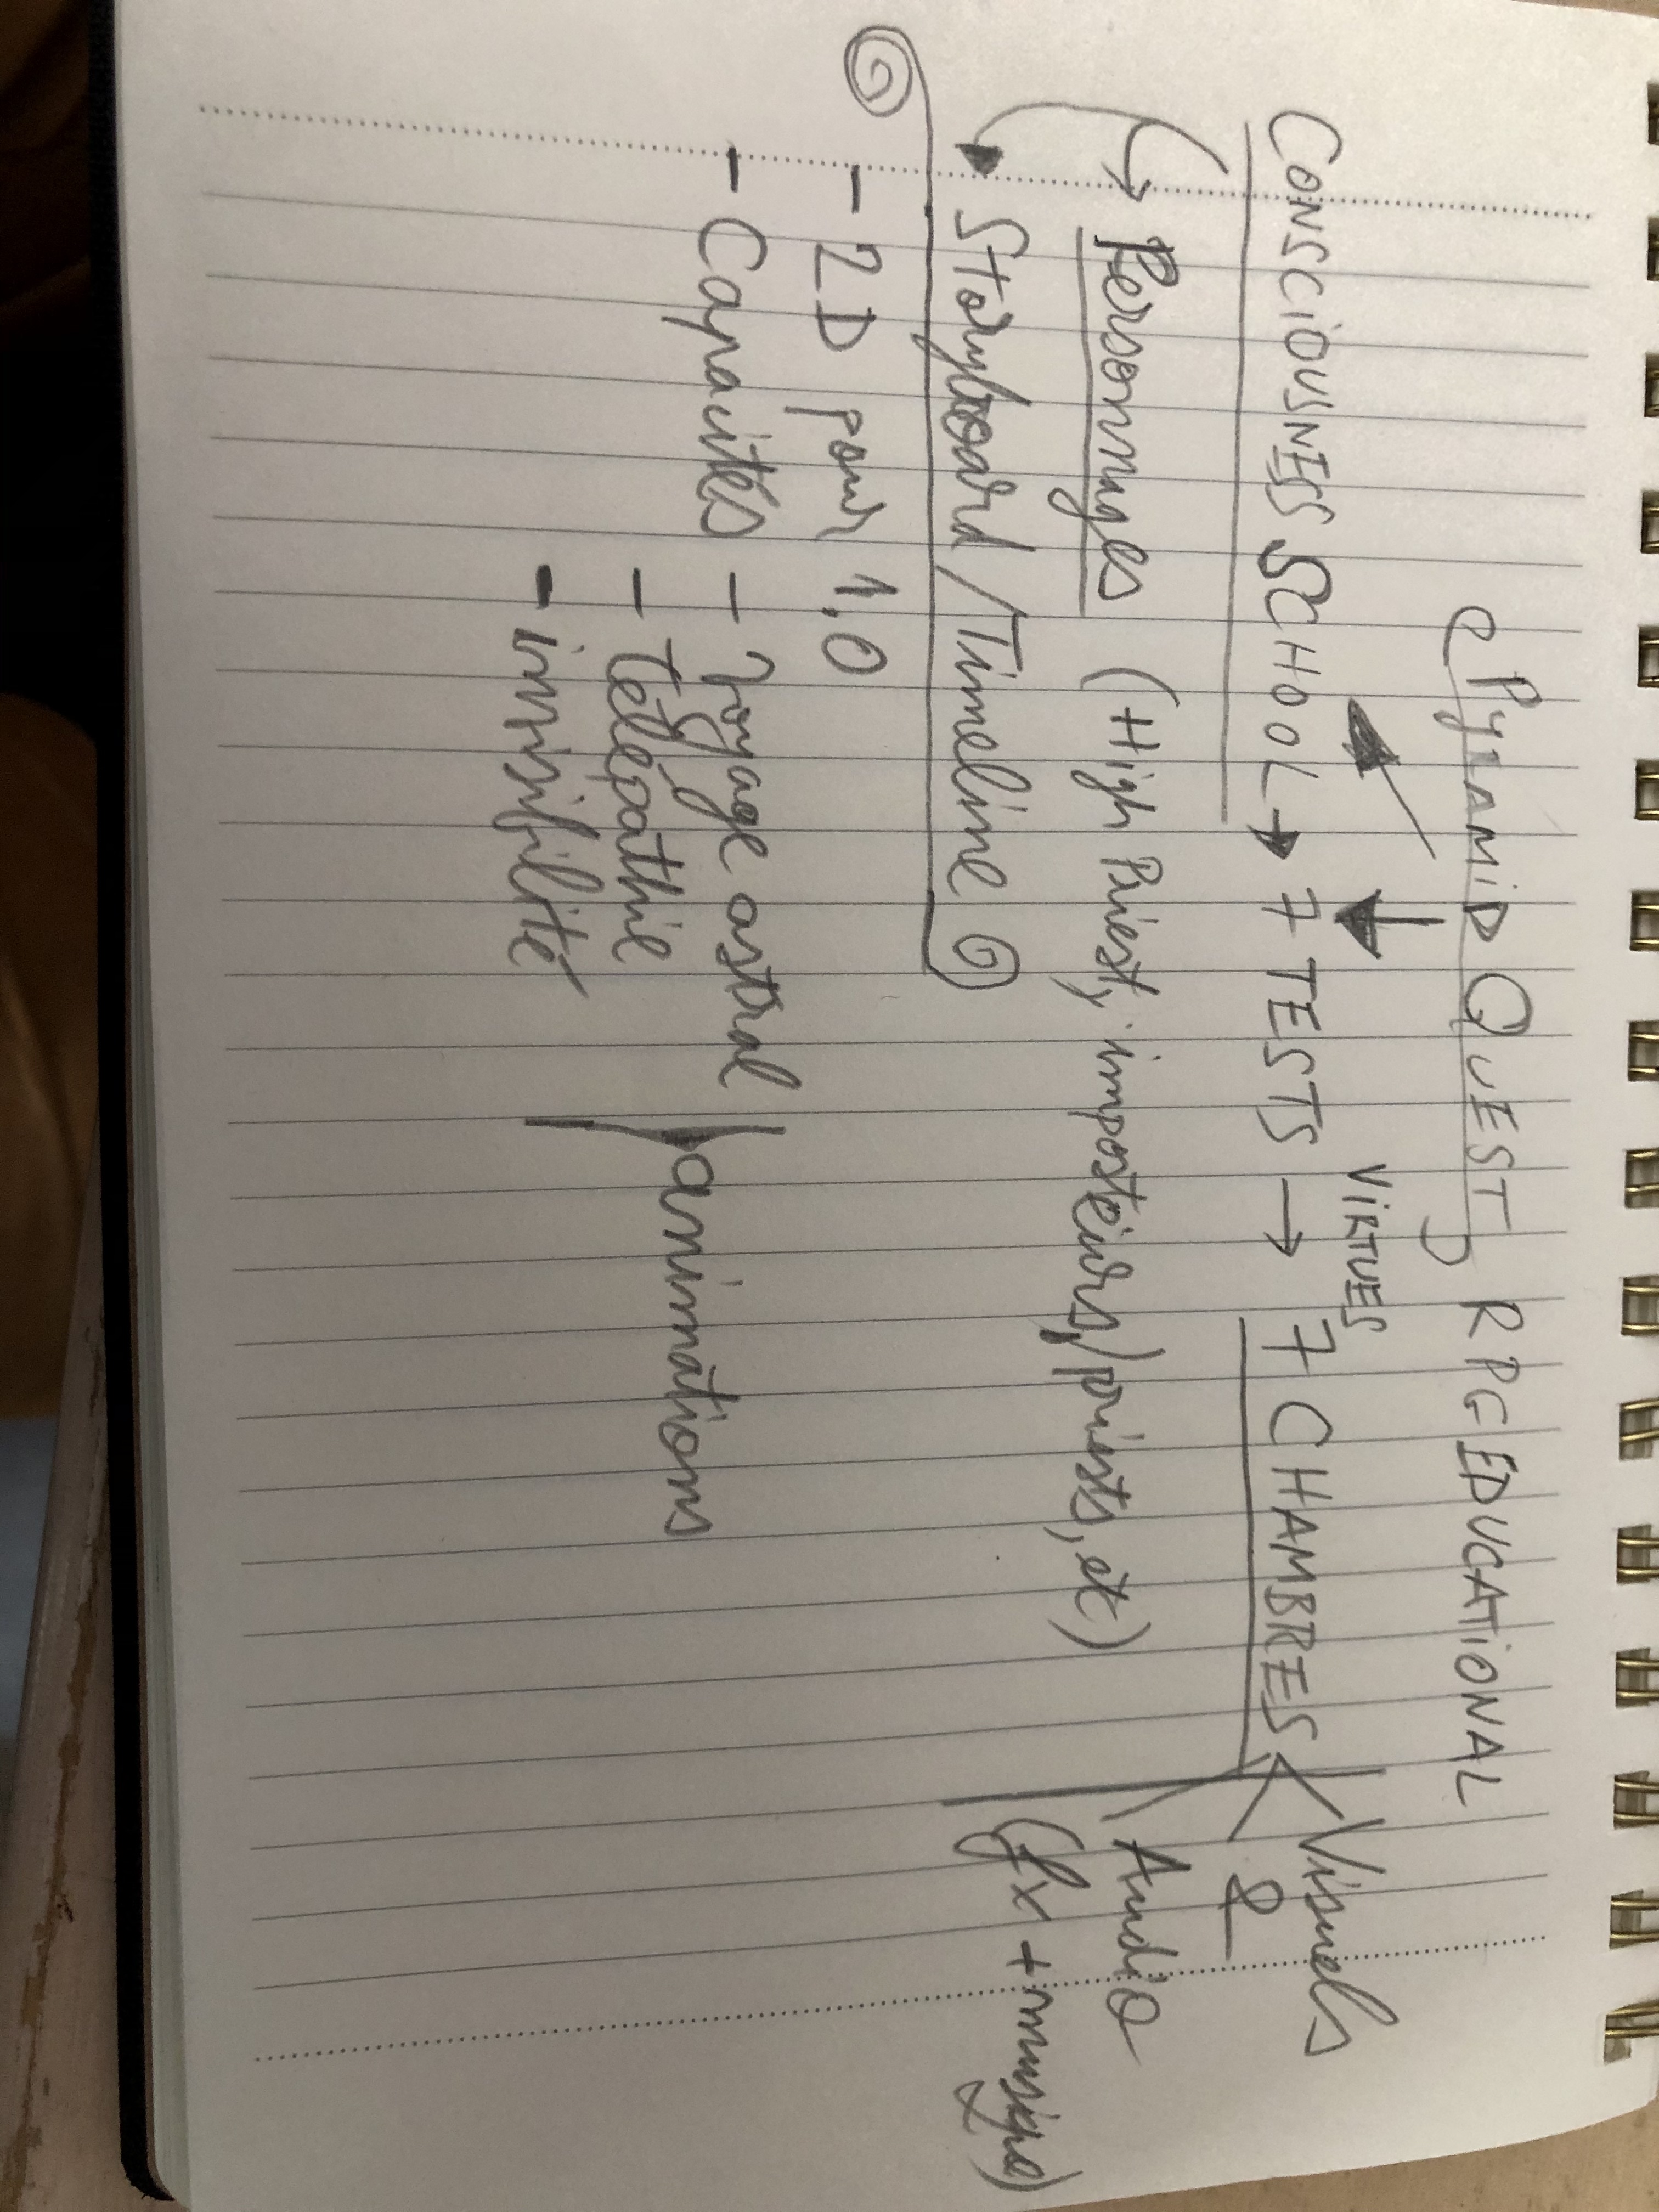 PYRAMID QUEST RPG EDUCATIONAL
VIRTUES
CONSCIOUSNESS SCHOOL → 7 TESTS → 7 CHAMBRES
Visuels
&
Audio
(fx + musique)
Personnages (High Priest, imposteurs, priests, etc)
Storyboard / Timeline
- 2D pour 1,0
- Capacités - Voyage astral
- Télépathie
- invisibilité
animations